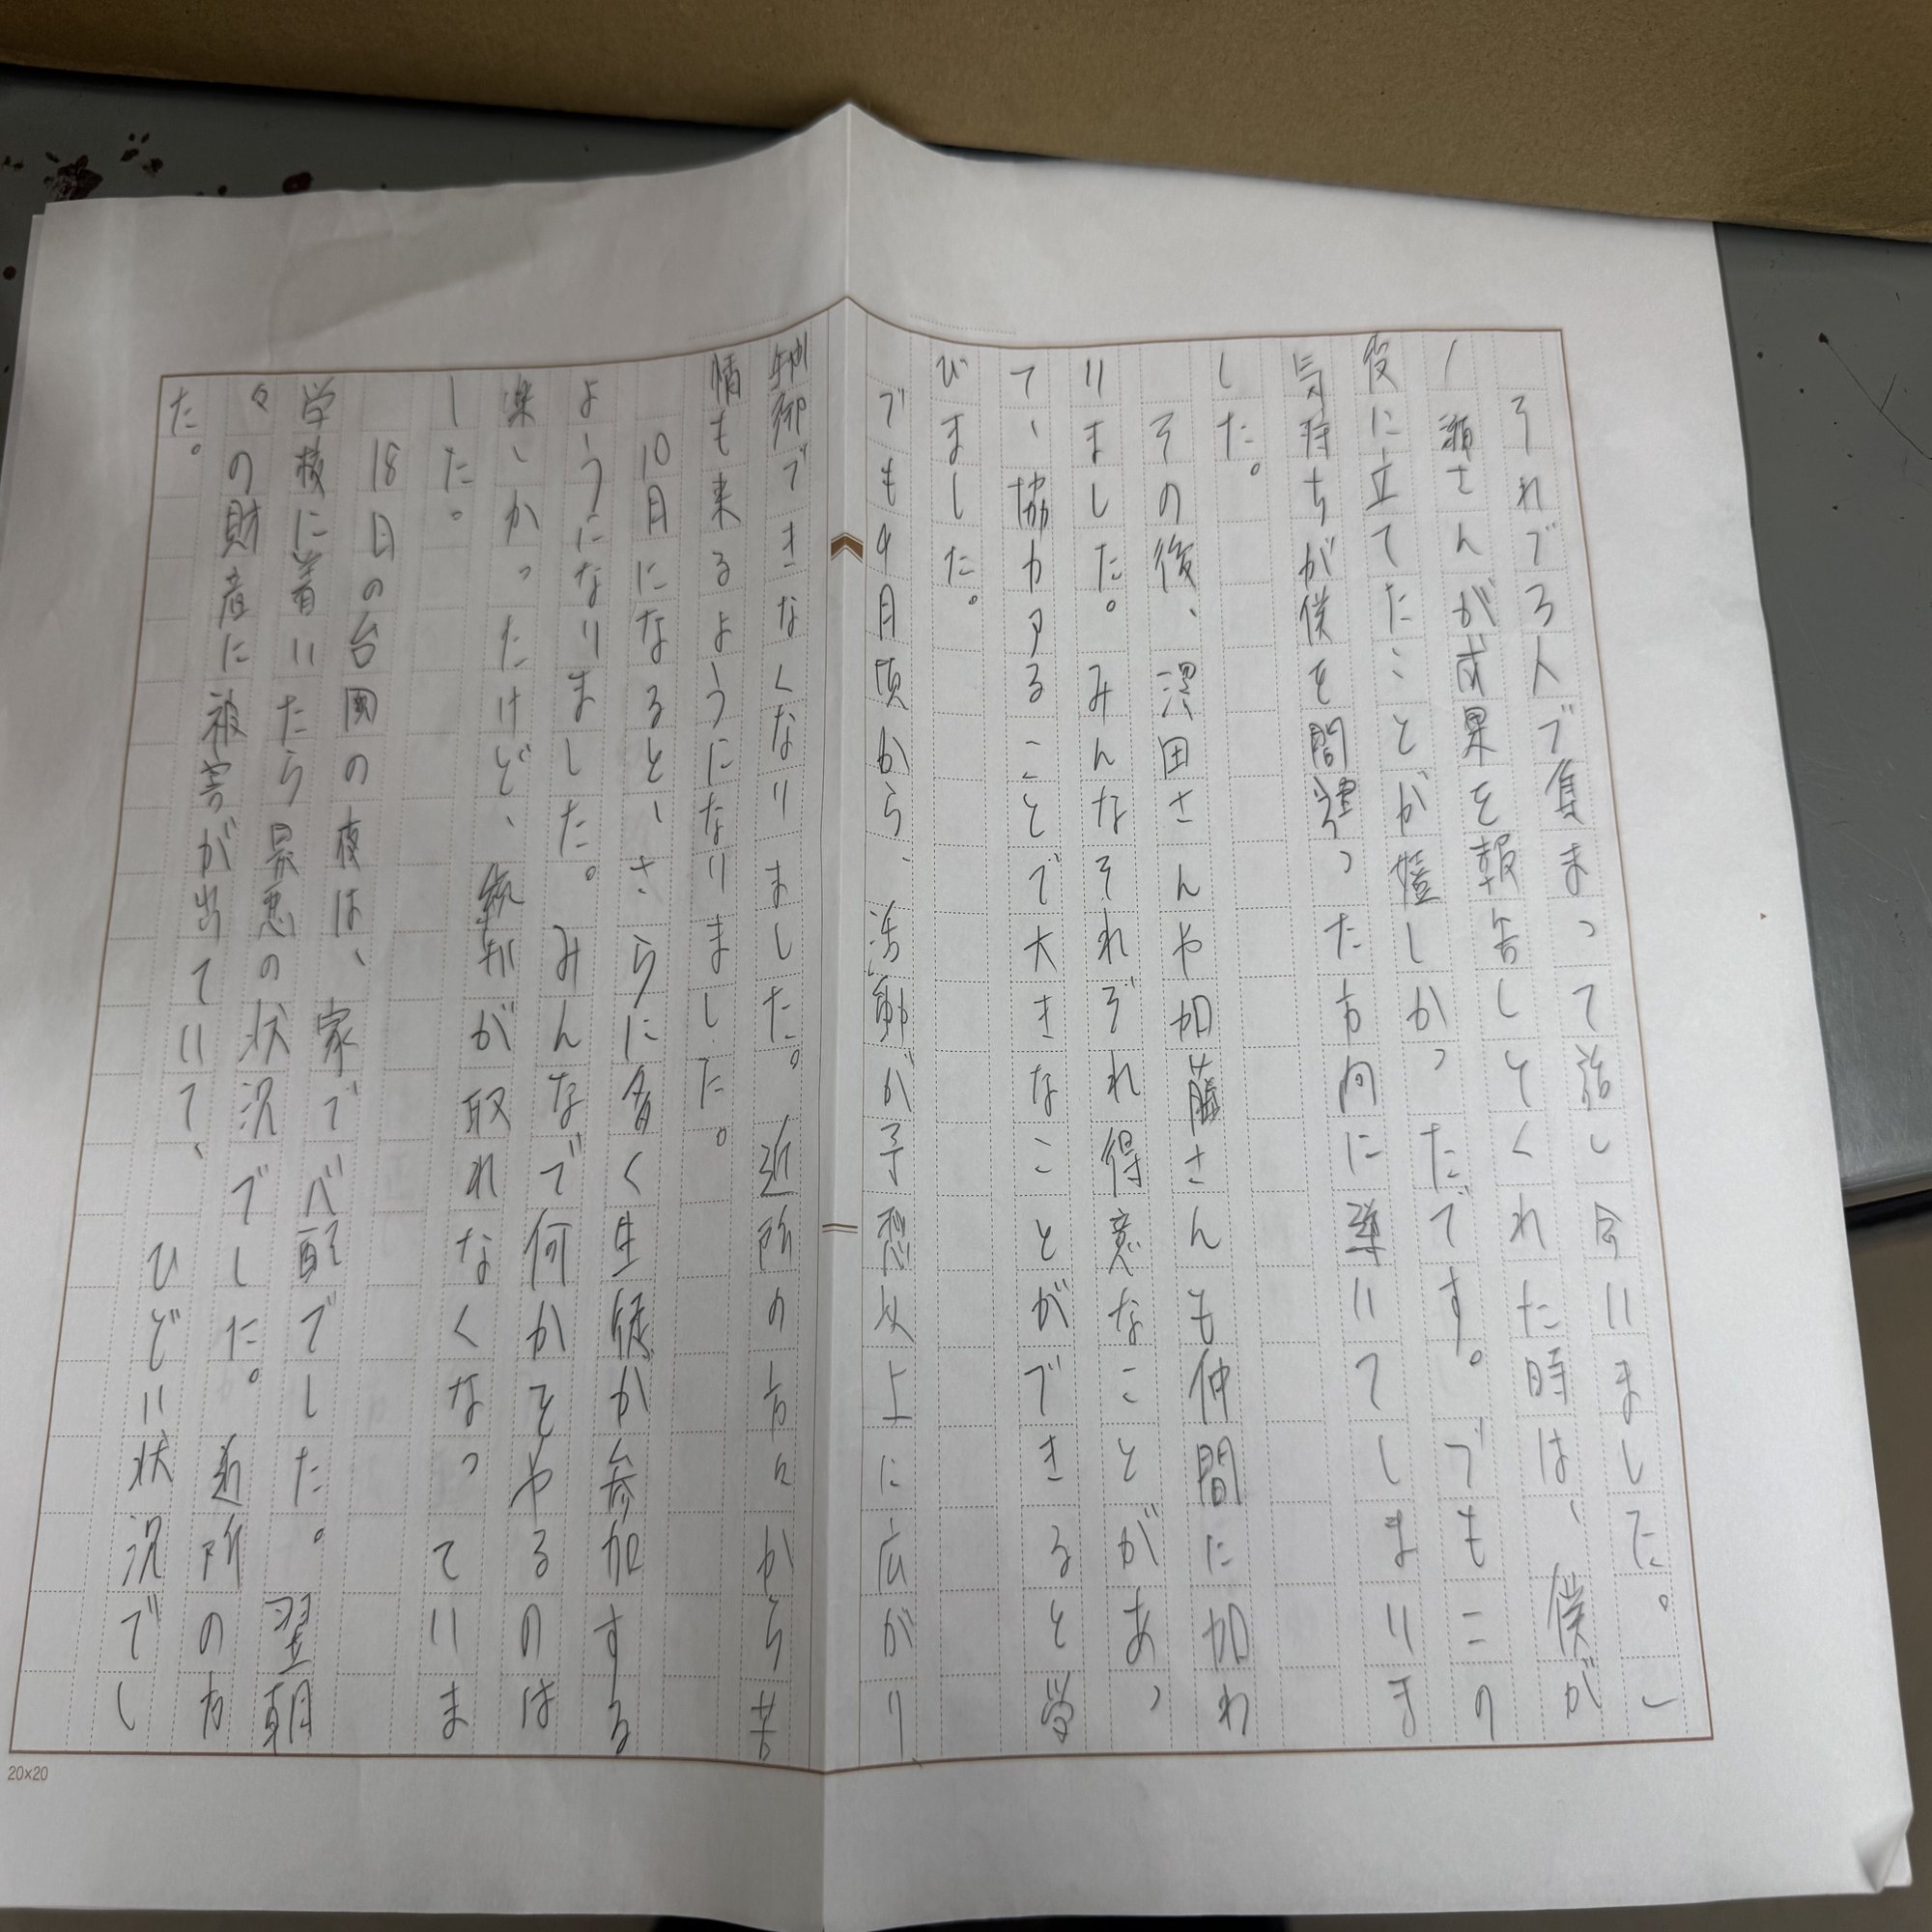 それで3人で集まって話し合いました。一
ノ瀬さんが成果を報告してくれた時は、僕が
役に立てたことが嬉しかったです。でもこの
気持ちが僕を間違った方向に導いてしまいま
した。
その後、沢田さんや加藤さんも仲間に加わ
りました。みんなそれぞれ得意なことがあっ
て、協力することで大きなことができると学
びました。
でも9月頃から、活動が予想以上に広がり
制御できなくなりました。近所の方々から苦
情も来るようになりました。
10月になると、さらに多く生徒が参加する
ようになりました。みんなで何かをやるのは
楽しかったけど、統制が取れなくなっていま
した。
18日の台風の夜は、家で心配でした。翌朝
学校に着いたら最悪の状況でした。近所の方
々の財産に被害が出ていて、ひどい状況でし
た。
20×20